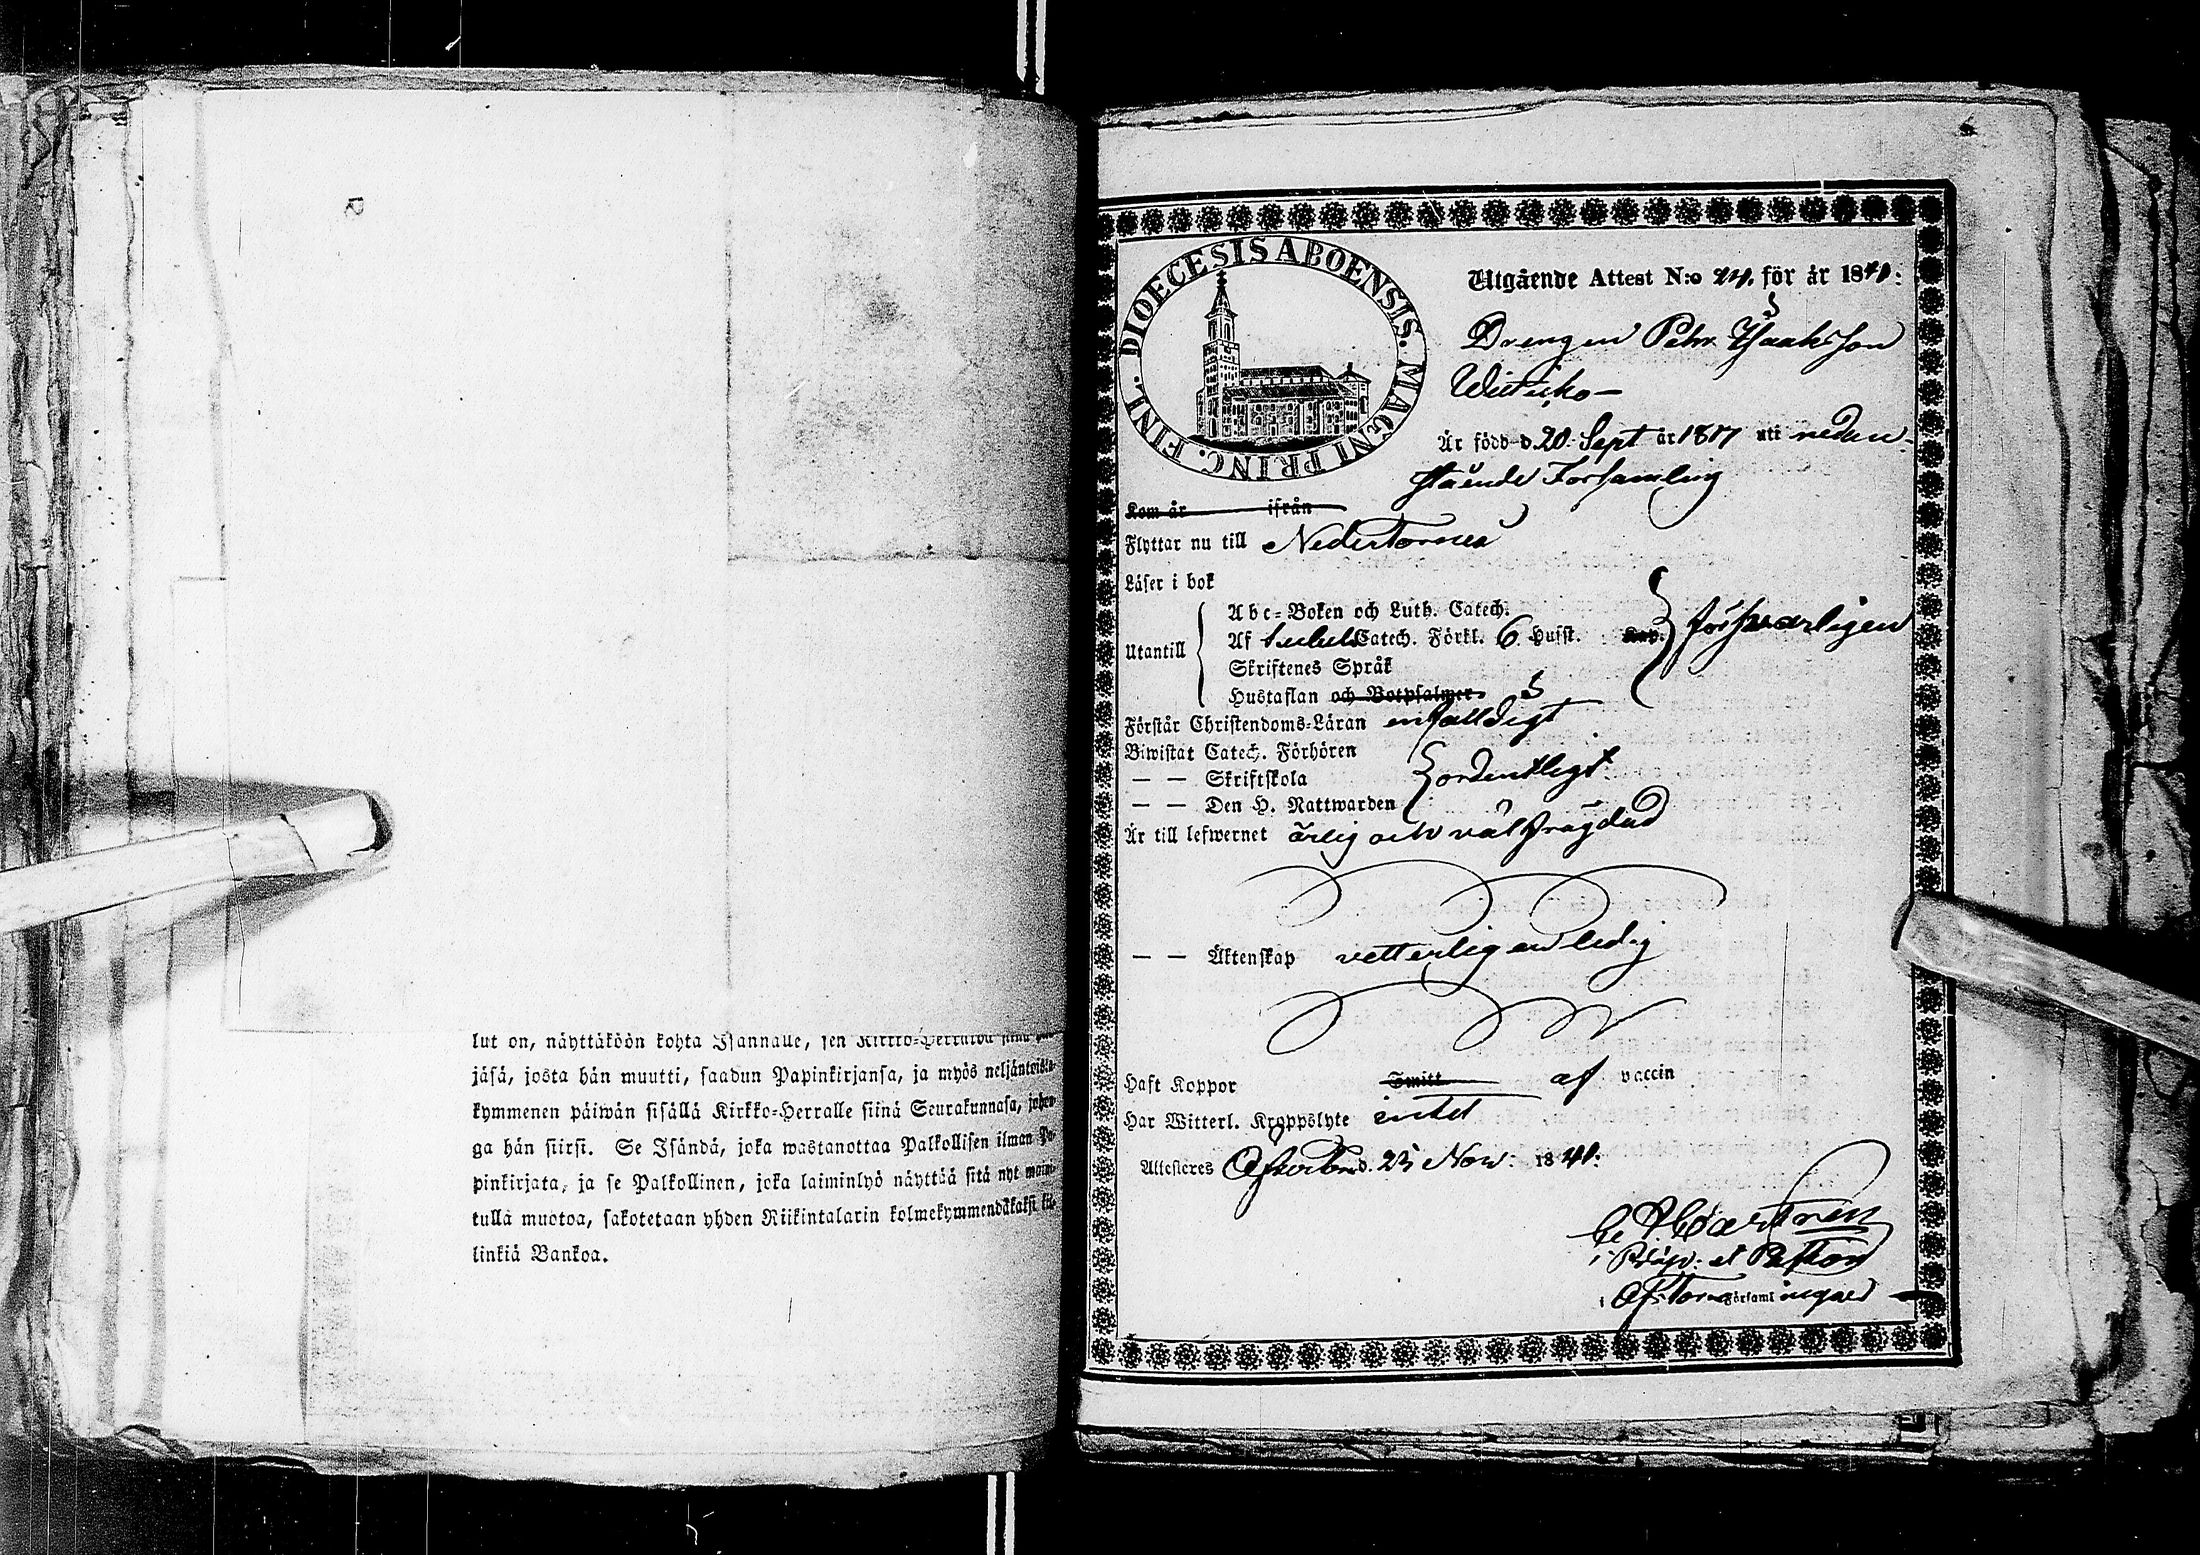 lut on, näyttäköön kohta Isännälle, sen Kirkko-Herralda siinä
jäsä, josta hän muutti, saadun Papinkirjansa, ja myös neljäntoista-
kymmenen päiwän sisällä Kirkko-Herralle siinä Seurakunnasa, johon-
ga hän siirsi. Se Isändä, joka wastanottaa Palkollisen ilman Pa-
pinkirjata, ja se Palkollinen, joka laiminlyö näyttää sitä nyt maini-
tullä muotoa, sakotetaan yhden Riikintalarin kolmekymmendäkaksi kil-
linkiä Bankoa.
DIOECESIS ABOENSIS. MAGNI PRINC. FINL.
Utgående Attest N:o 24. för år 1841.
Drengen Petr Isaaksson
Är född d. 20. Sept år 1817 uti nedan-
stående Forsamling
Kom år ifrån
Flyttar nu till NederTorneå
Läser i bok
Utantill
Abc-Boken och Luth. Catech.
Af Catech. Förkl. 6 Husst. Kap. försvarligen
Skriftenes Språk
Hustaflan och Botpsalmer
Förstår Christendoms-Läran enfalldigt
Biwistat Catech. Förhören
— — Skriftskola ordentligt
— — Den H. Nattwarden
Är till lefwernet ärlig och välfrägdad
— — Äktenskap vetterligen ledig
Haft Koppor Smitt af vaccin
Har Witterl. Kroppslyte intet
Attesteres d. 25 Nov: 1841.
Präp: et Pastor
i Församl